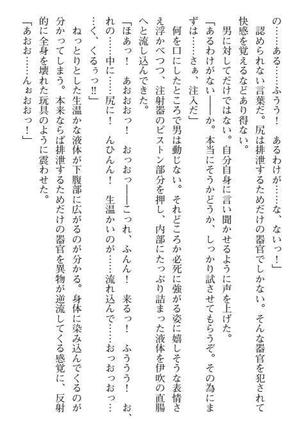 の……ある……ふうう！　あるわけが……ふうう、な、ないっ！」
認められない言葉だ。尻は排泄するためだけの器官でしかない。そんな器官を犯されて
快感を覚えるなどあり得ない。
男に対してだけではない。自分自身に言い聞かせるように声を上げた。
「あるわけがない――か。本当にそうかどうか、しっかり試させてもらうぞ。その為にま
ずは……さぁ、注入だ」
何を口にしたところで男は動じない。それどころか必死に強がる姿に嬉しそうな表情さ
え浮かべつつ、注射器のピストン部分を押し、内部にたっぷり詰まった液体を伊吹の直腸
へと流し込んできた。
「ほあっ！　あおおおっ！　おっおっ――こっれ、ふんん！　来るっ！　ふううう！　お、
の……中に……尻に！　んひんん！　生温かいのが……流れ込んで……おっおっおっ…
…く、くるぅっ!!」
ねっとりとした生温かな液体が下腹部に広がるのが分かる。身体に染み込んでくるのが
分かってしまう。本来ならば排泄するためだけの器官を異物が逆流してくる感覚に、反射
的に全身を壊れた玩具のように震わせた。
「あおお……んぉおおっ！」